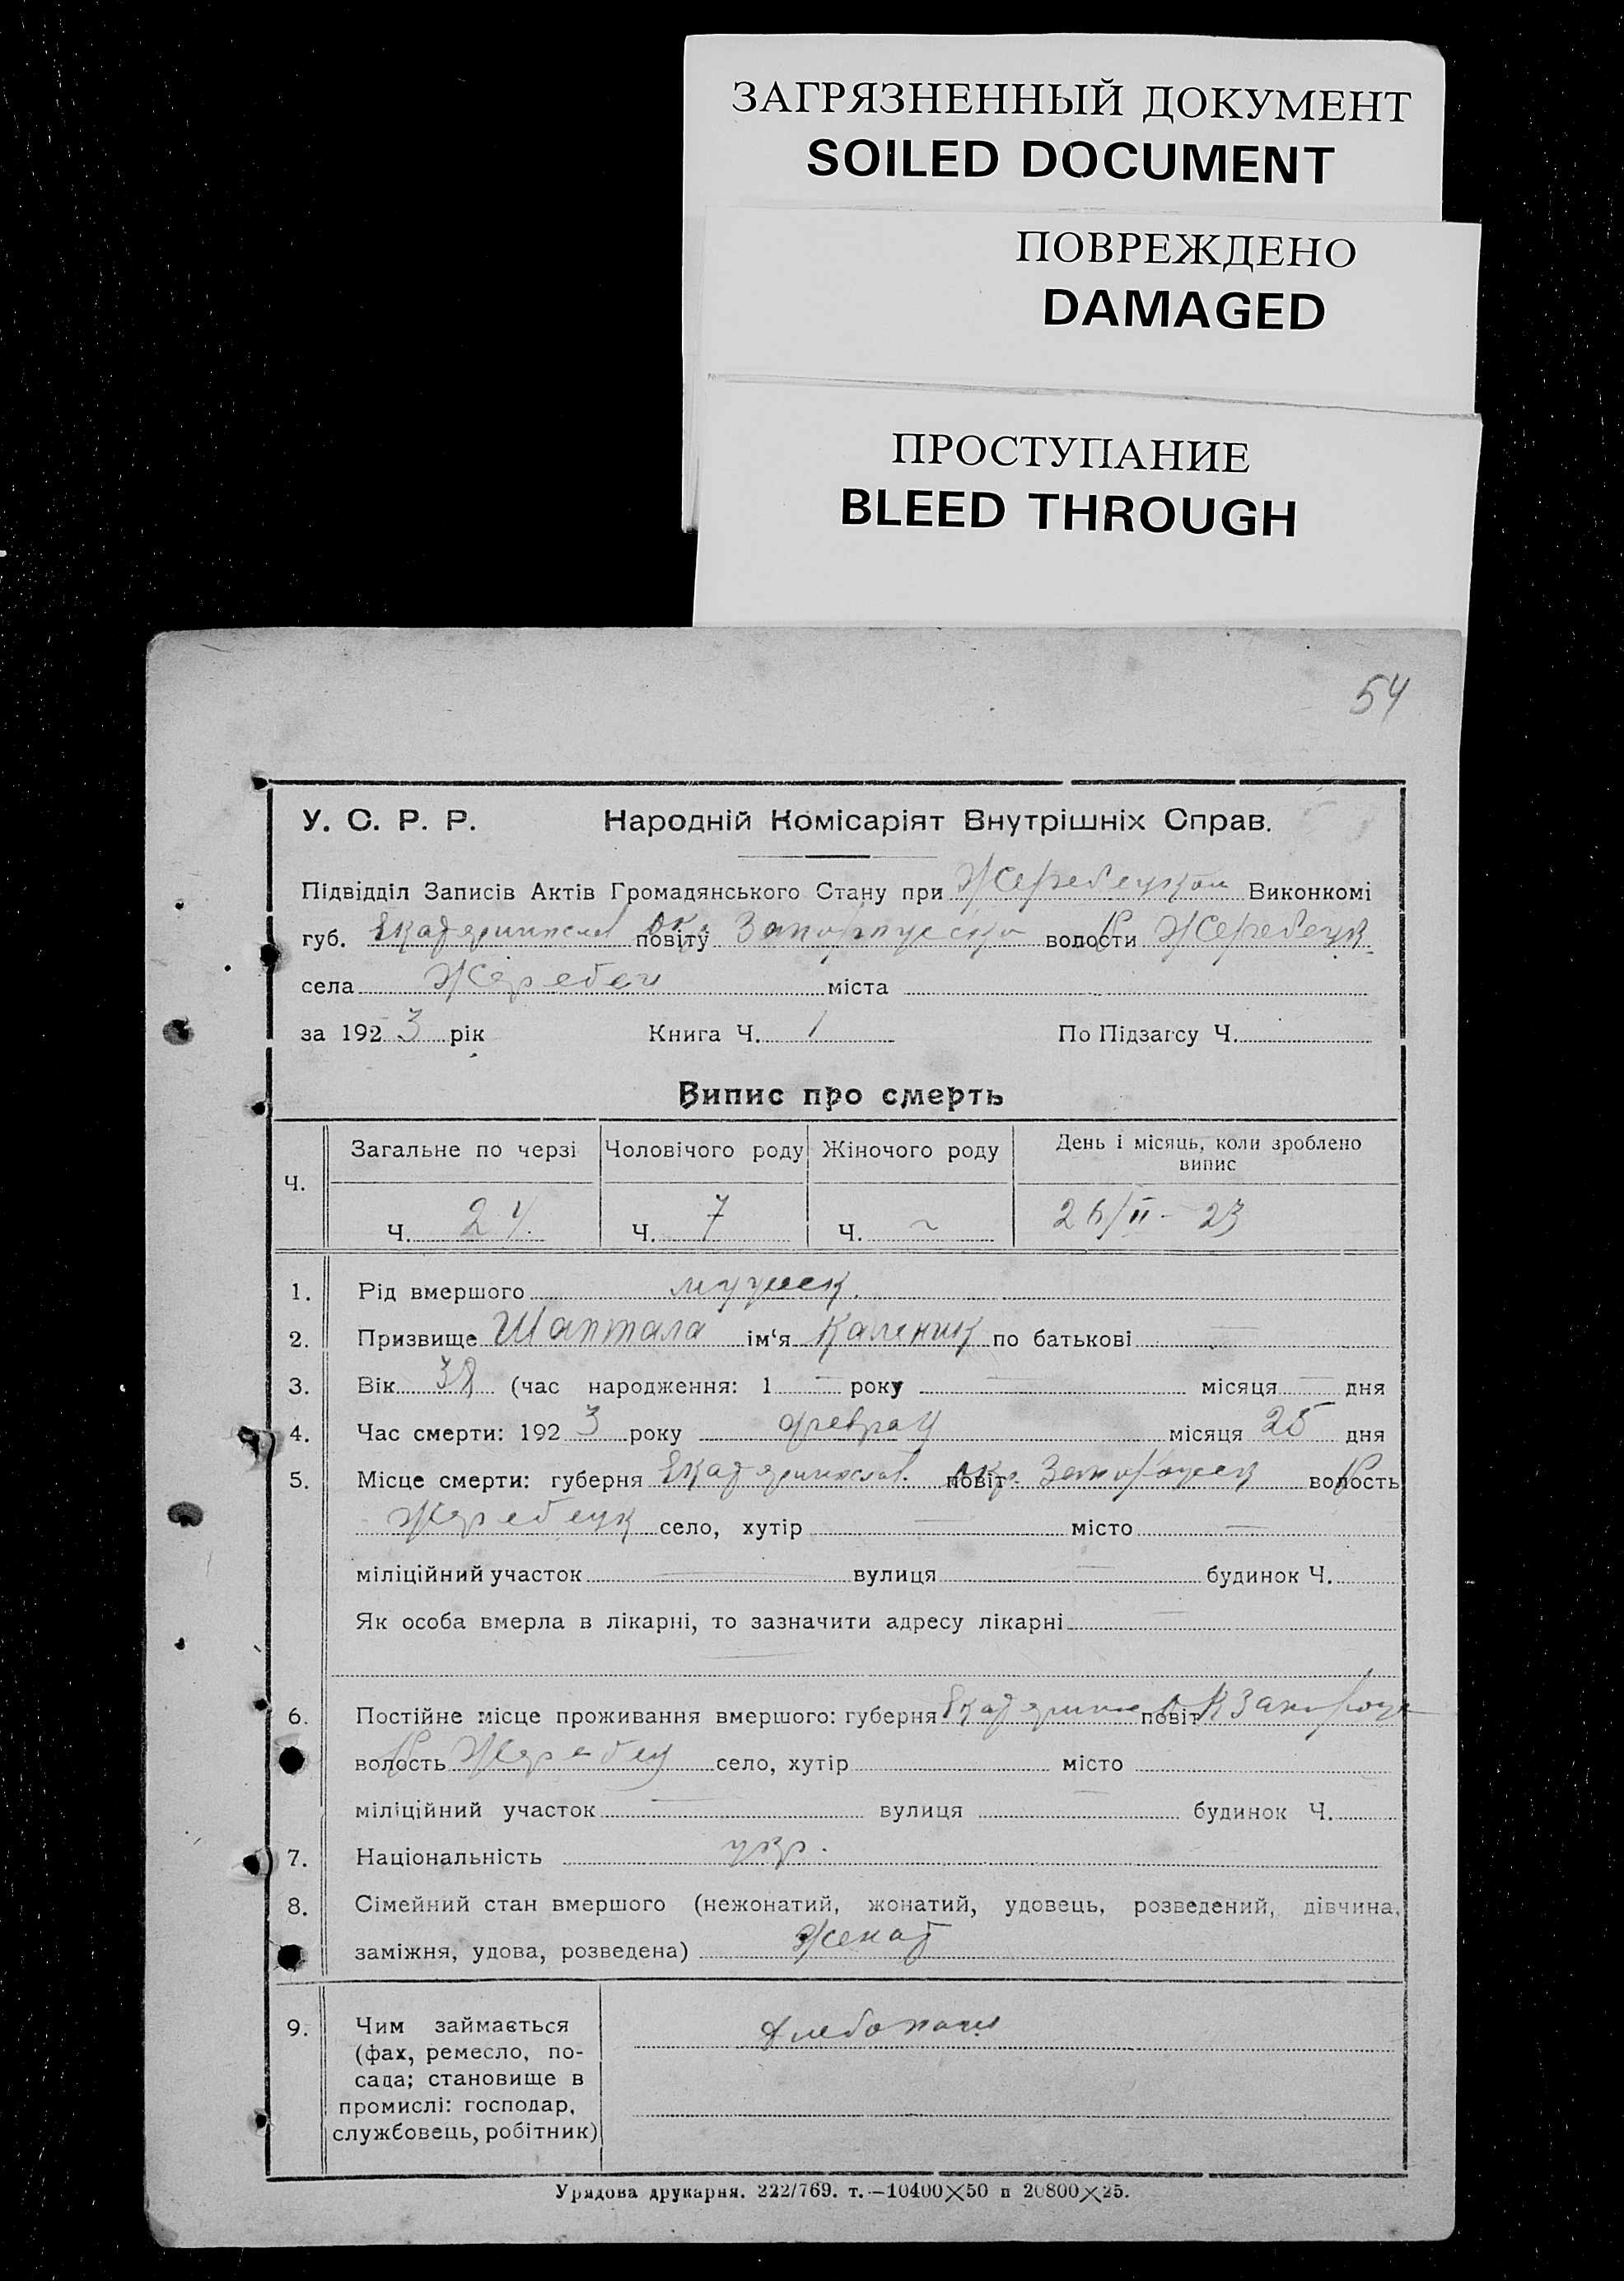 ЗАГРЯЗНЕННЫЙ ДОКУМЕНТ
SOILED DOCUMENT
ПОВРЕЖДЕНО
DAMAGED
ПРОСТУПАНИЕ
BLEED THROUGH
54
У. С. Р. Р. Народній Комісаріят Внутрішніх Справ.
Підвідділ Записів Актів Громадянського Стану при Жеребецком Виконкомі
губ. Екатеринослав повіту окр волости Р Жеребецк
села Жеребец міста
за 1923 рік Книга Ч. 1 По Підзагсу Ч.
Випис про смерть
Ч. Загальне по черзі Чоловічого роду Жіночого роду День і місяць, коли зроблено
випис
Ч. 24 Ч. 7 Ч. ~ 26/II - 23
1. Рід вмершого мужеск.
2. Призвище Шаптала ім‘я Каленик по батькові —
3. Вік 38 (час народження: 1 — року — місяця — дня
4. Час смерти: 1923 року феврал місяця 25 дня
5. Місце смерти: губерня Екатеринослав. повіт окр. Запорожск волость Р
Жеребецк село, хутір — місто —
міліційний участок — вулиця — будинок Ч.
Як особа вмерла в лікарні, то зазначити адресу лікарні —
6. Постійне місце проживання вмершого: губерня Екатерино повіт Запорож
волость Р Жеребец село, хутір місто
міліційний участок — вулиця — будинок Ч.
7. Національність укр.
8. Сімейний стан вмершого (нежонатий, жонатий, удовець, розведений, дівчина,
заміжня, удова, розведена) Женат
9. Чим займається Хлебопаш
(фах, ремесло, по-
сада; становище в
промислі: господар,
службовець, робітник)
Урядова друкарня. 222/769. т.—10400×50 п 20800×25.